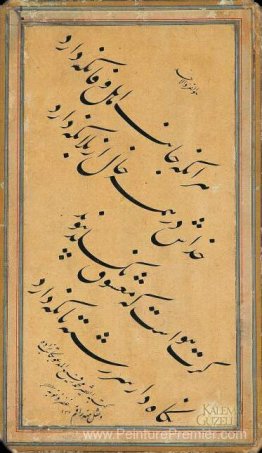 هر آنکه جانب اهل وفا نگه دارد
خداش در همه حال از بلا نگه دارد
گرت هواست که معشوق نگسلد پیوند
نگاه دار سر رشته تا نگه دارد
KALEM
GÜZELİ
www.PeinturePremier.com